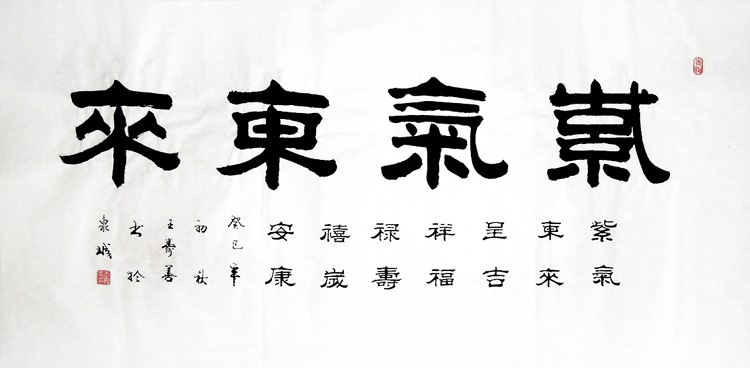 紫氣東來
紫氣
東來
呈吉
祥福
禄壽
禧歲
安康
癸巳年
初秋
王壽善
书於
泉城